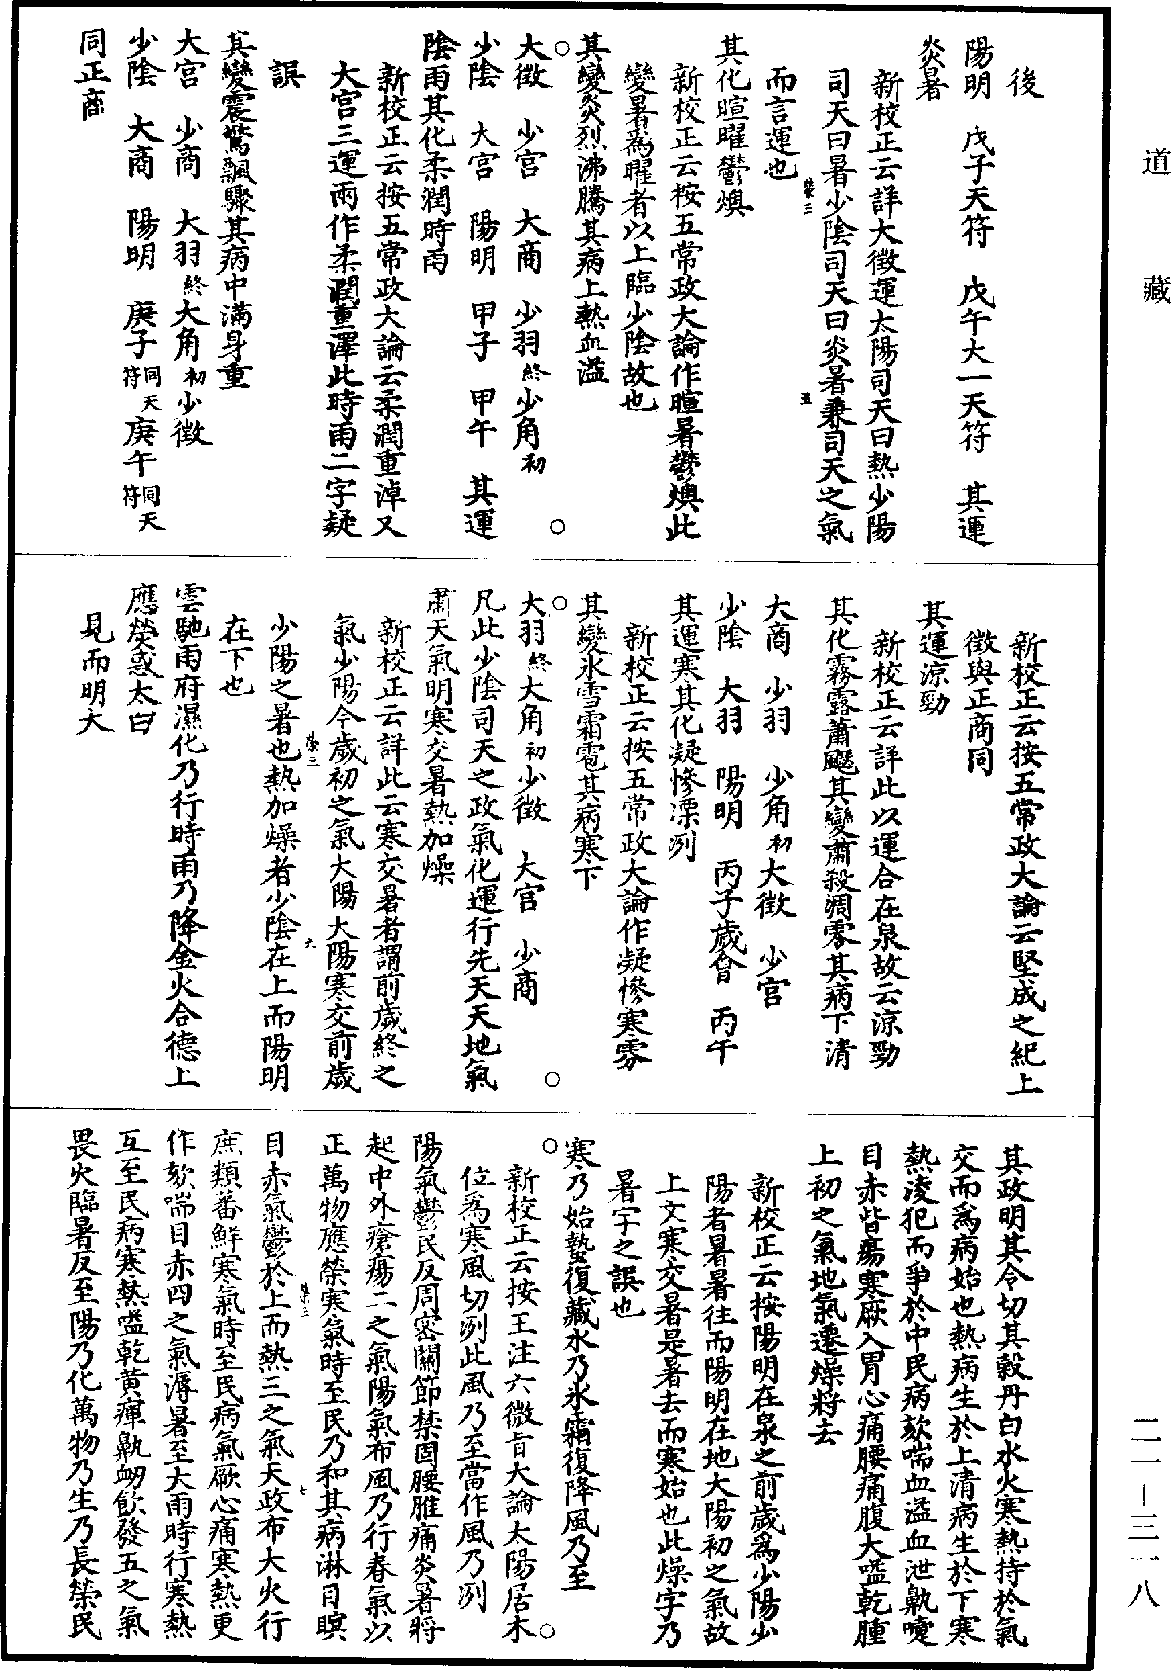 道藏
後
陽明　戊子天符　戊午太一天符　其運
炎暑
新校正云詳大徵運太陽司天曰熱少陽
司天曰暑少陰司天曰炎暑兼司天之氣
而言運也
其化暄曜鬱燠
新校正云按五常政大論作暄暑鬱燠此
變暑爲曜者以上臨少陰故也
其變炎烈沸騰其病上熱血溢
○大徵　少宮　大商　少羽終少角初○
少陰　大宮　陽明　甲子　甲午　其運
陰雨其化柔潤時雨
新校正云按五常政大論云柔潤重淖又
大宮三運兩作柔潤重澤此時雨二字疑
誤
其變震驚飄驟其病中滿身重
大宮　少商　大羽終大角初少徵
少陰　大商　陽明　庚子同天符庚午同天符
同正商
新校正云按五常政大論云堅成之紀上
徵與正商同
其運涼勁
新校正云詳此以運合在泉故云涼勁
其化霧露蕭飋其變肅殺凋零其病下清
大商　少羽　少角初大徵　少宮
少陰　大羽　陽明　丙子歲會　丙午
其運寒其化凝慘凓冽
新校正云按五常政大論作凝慘寒雰
其變氷雪霜雹其病寒下
○大羽終大角初少徵　大宮　少商○
凡此少陰司天之政氣化運行先天天地氣
肅天氣明寒交暑熱加燥
新校正云詳此云寒交暑者謂前歲終之
氣少陽今歲初之氣大陽大陽寒交前歲
少陽之暑也熱加燥者少陰在上而陽明
在下也
雲馳雨府濕化乃行時雨乃降金火合德上
應熒惑太白
見而明大
其政明其令切其穀丹白水火寒熱持於氣
交而爲病始也熱病生於上清病生於下寒
熱淩犯而爭於中民病欬喘血溢血泄鼽嚏
目赤眥瘍寒厥入胃心痛腰痛腹大嗌乾腫
上初之氣地氣遷燥將去
新校正云按陽明在泉之前歲爲少陽少
陽者暑暑往而陽明在地大陽初之氣故
上文寒交暑是暑去而寒始也此燥字乃
暑字之誤也
寒乃始蟄復藏水乃氷霜復降風乃至
○新校正云按王注六微旨大論太陽居木○
位爲寒風切冽此風乃至當作風乃冽
陽氣鬱民反周密關節禁固腰脽痛炎暑將
起中外瘡瘍二之氣陽氣布風乃行春氣以
正萬物應榮寒氣時至民乃和其病淋目瞑
目赤氣鬱於上而熱三之氣天政布大火行
庶類蕃鮮寒氣時至民病氣厥心痛寒熱更
作欬喘目赤四之氣溽暑至大雨時行寒熱
互至民病寒熱嗌乾黃癉鼽衂飲發五之氣
畏火臨暑反至陽乃化萬物乃生乃長榮民
二一－三一八